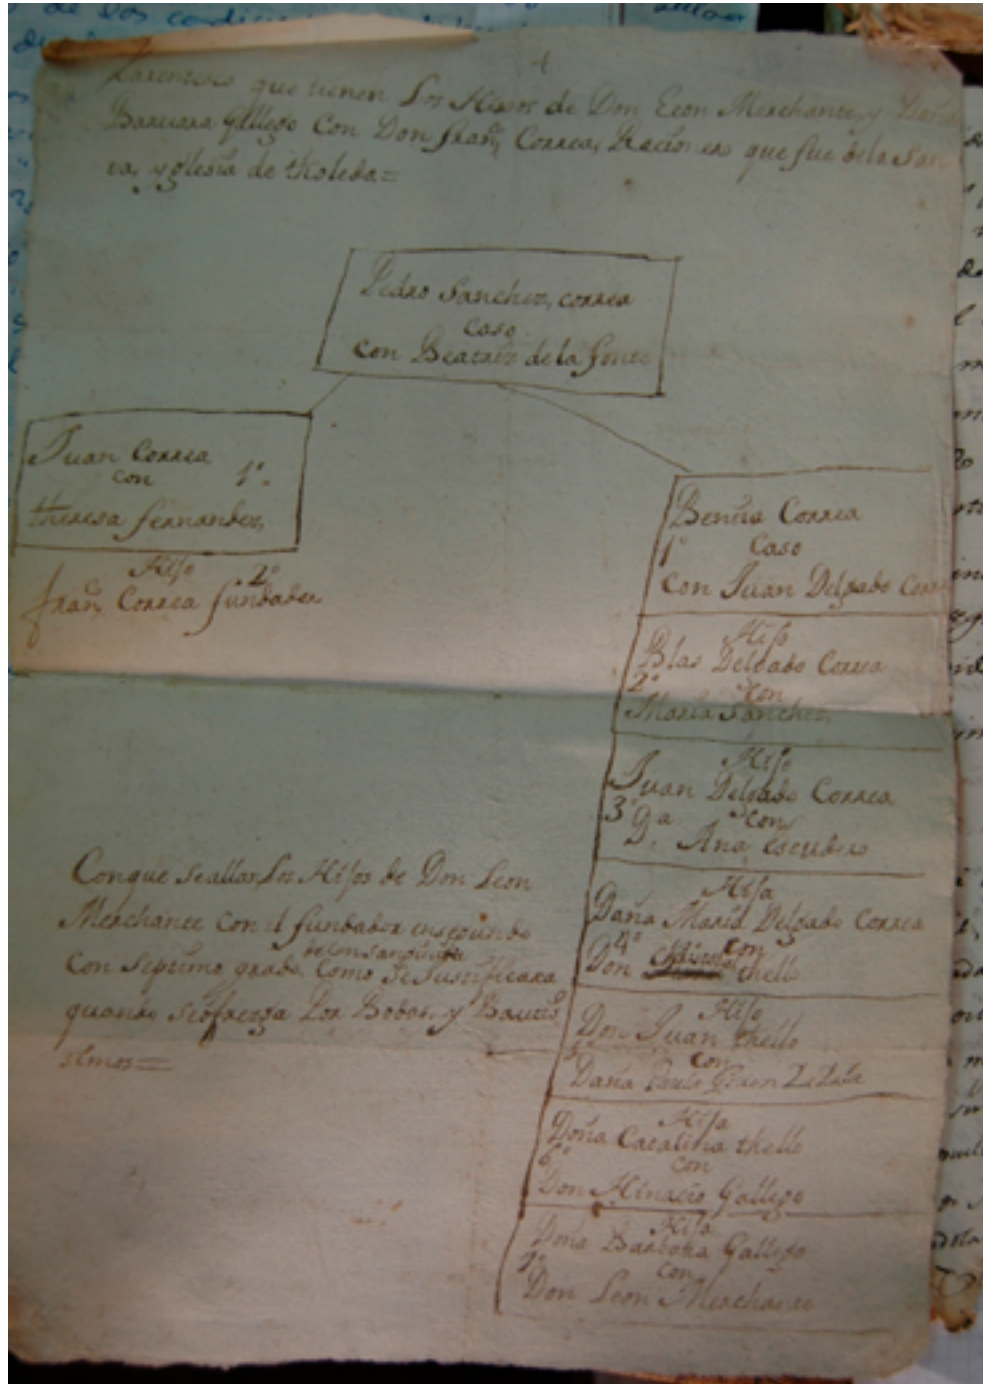 +
Parentesco que tienen Los Hixos de Don Leon Merchante, y Doña
Barvara Gallego Con Don Fran.co Correa, Racionero que fue de la San
ta, yglesia de tholedo=
Pedro Sanchez, correa
Caso
Con Beatriz de la fuente
Juan Correa
con 1º.
theresa fernandez,
Hijo 2º
fran.co Correa fundador
Benita Correa
1º Caso
Con Juan Delgado
Hijo
Blas Delgado Correa
2º con
Maria Sanchez
Hijo
Juan Delgado Correa
3º con
D.a Ana escudero
Hija
Doña Maria Delgado Correa
4º con
Don thello
Hijo
Don Juan thello
5º con
Doña Paula
Hija
Doña Catalina thello
6º con
Don Hinacio Gallego
Hija
Doña Barbora Gallego
7º con
Don Leon Merchante
Conque se allan, Los Hijos de Don Leon
Merchante Con el fundador en segundo
de consanguini.d
Con septimo grado. Como se Justificara
quando se ofrezca Por Bodas, y Bautis
simos=